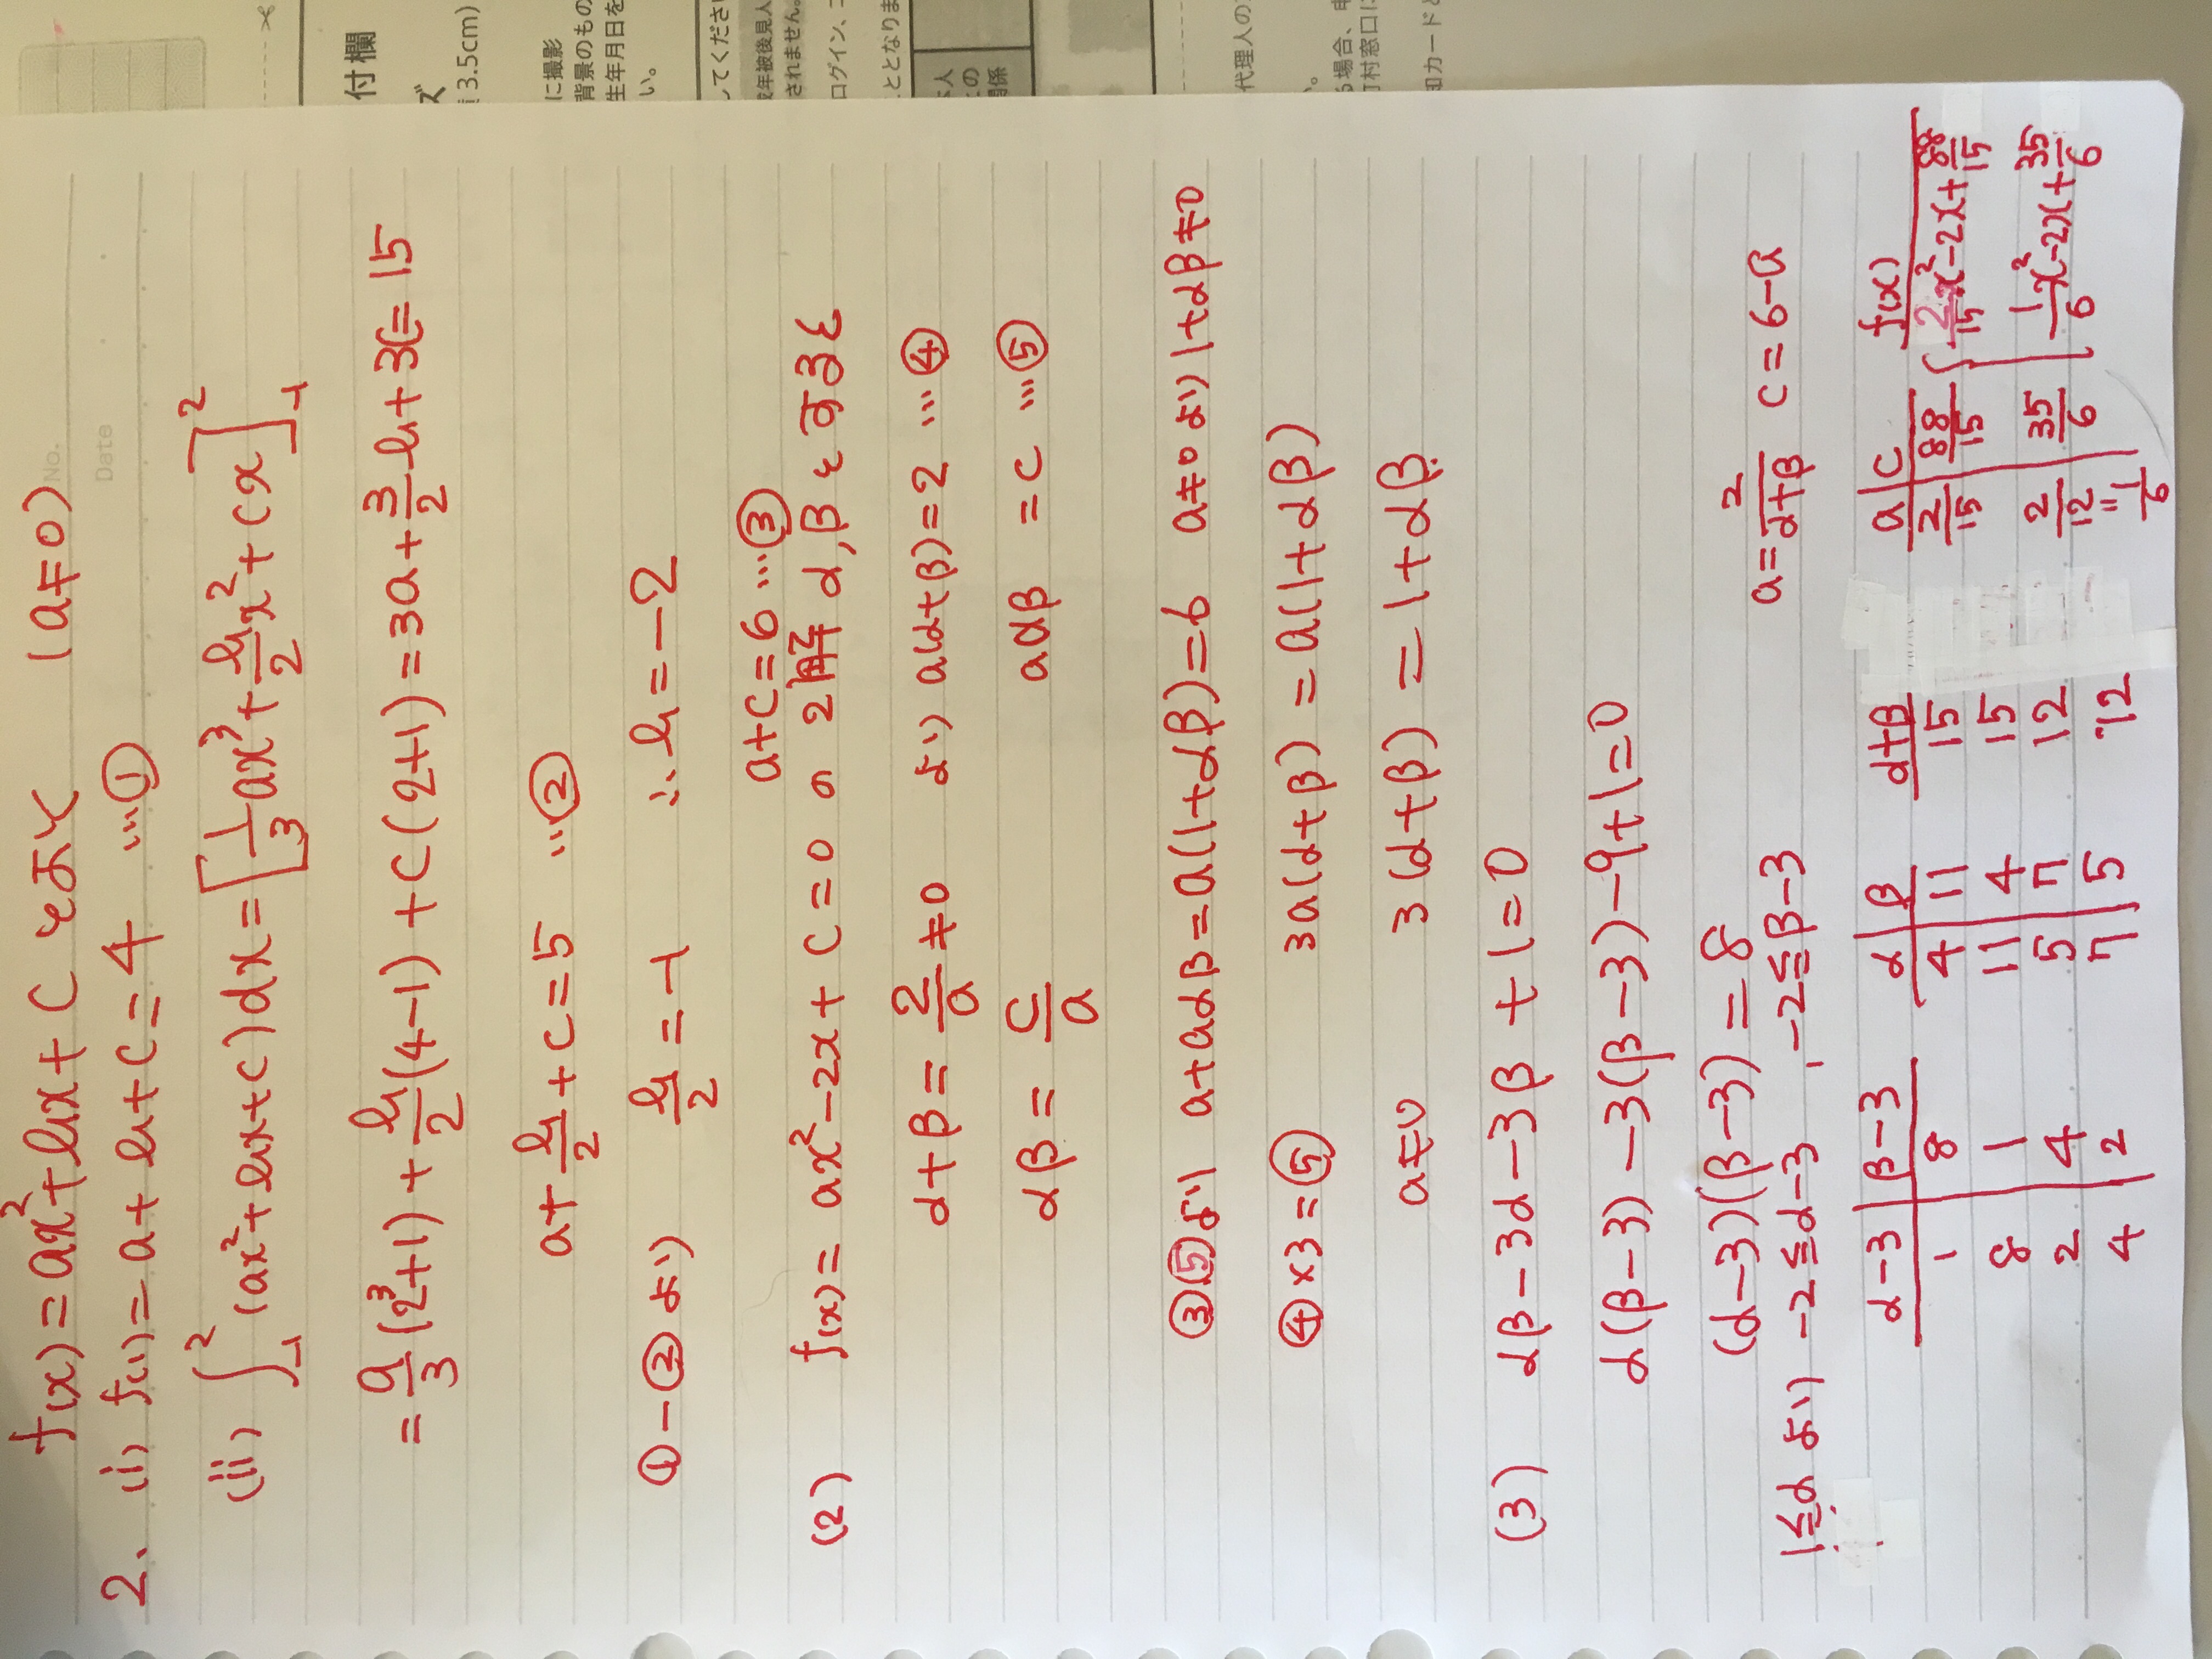 No.
Date
f(x)=ax²+bx+C とおく (a≠0)
2、(i) f(1)=a+b+C=4 …①
(ii) ∫₋₁² (ax²+bx+c)dx=[1/3 ax³+b/2 x²+Cx]₋₁²
=a/3(2³+1)+b/2(4-1)+C(2+1)=3a+3/2 b+3C=15
a+b/2+C=5 …②
①-②より b/2=-1 ∴b=-2
a+C=6…③
(2) f(x)=ax²-2x+C=0 の 2解 α,βとすると
α+β=2/a≠0 より a(α+β)=2 …④
αβ=C/a aαβ =C …⑤
③⑤より a+aαβ=a(1+αβ)=6 a≠0より 1+αβ≠0
④×3=⑤ 3a(α+β)=a(1+αβ)
a≠0 3(α+β)=1+αβ
(3) αβ-3α-3β+1=0
α(β-3)-3(β-3)-9+1=0
(α-3)(β-3)=8
1≦α より -2≦α-3 , -2≦β-3 a=2/(α+β) C=6-a
α-3 β-3 α β α+β a C f(x)
1 8 4 11 15 2/15 88/15 2/15 x²-2x+88/15
8 1 11 4 15
2 4 5 7 12 2/12 35/6 1/6 x²-2x+35/6
4 2 7 5 12 " 1/6
付欄
ズ
3.5cm)
に撮影
背景のもの
生年月日を
い。
ってくださ
年被後見人
されません。
ログイン、
ととなりま
本人
との
関係
代理人の
場合、申
町村窓口に
カードと